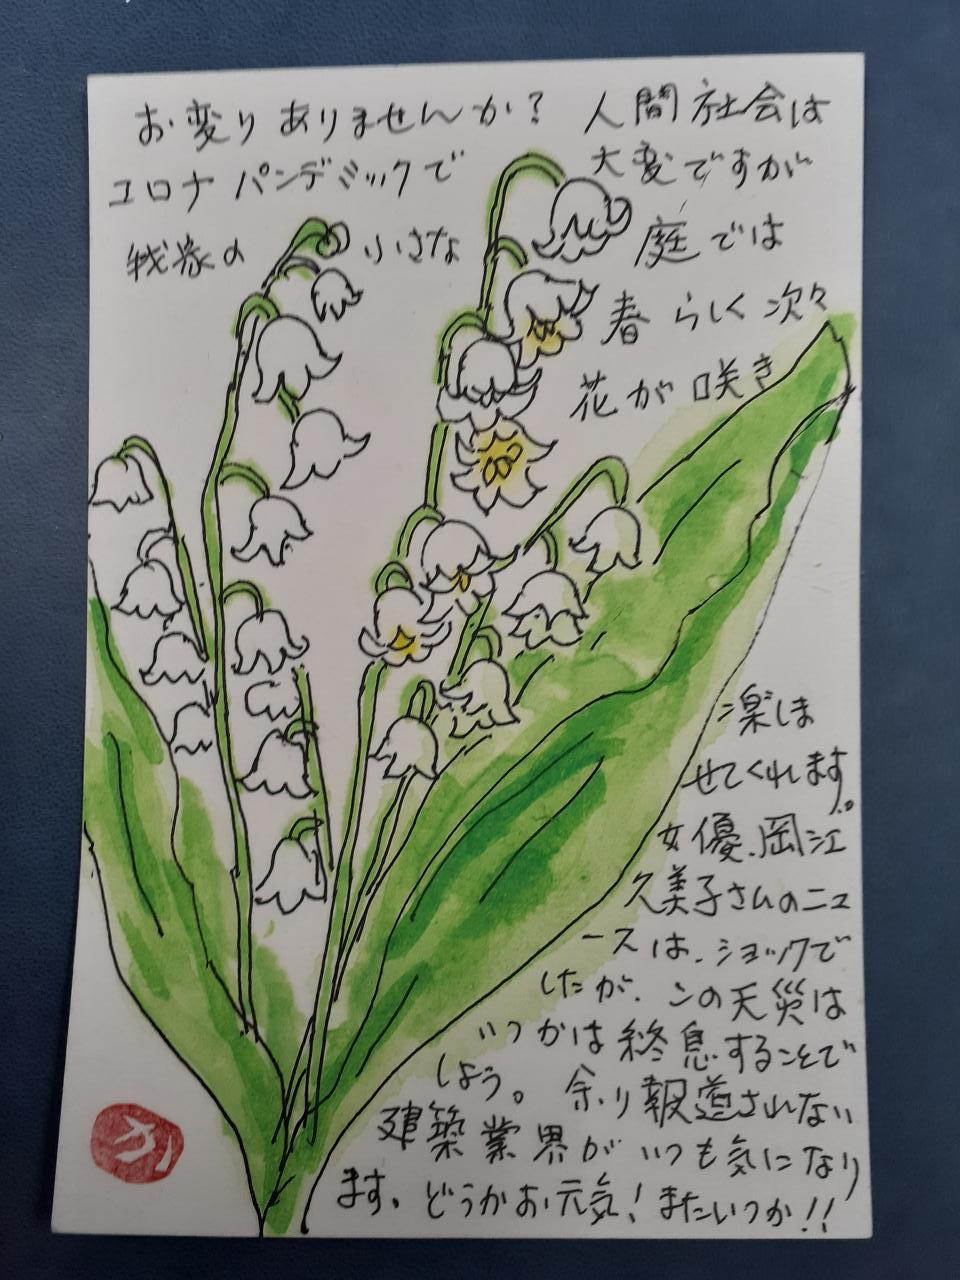 お変りありませんか? 人間社会は
コロナパンデミックで 大変ですが
我家の 小さな 庭では
春らしく次々
花が咲き
楽しま
せてくれます。
女優、岡江
久美子さんのニュ
ースは、ショックで
したが、この天災は
いつかは終息することで
しょう。余り報道されない
建築業界がいつも気になり
ます、どうかお元気!またいつか!!